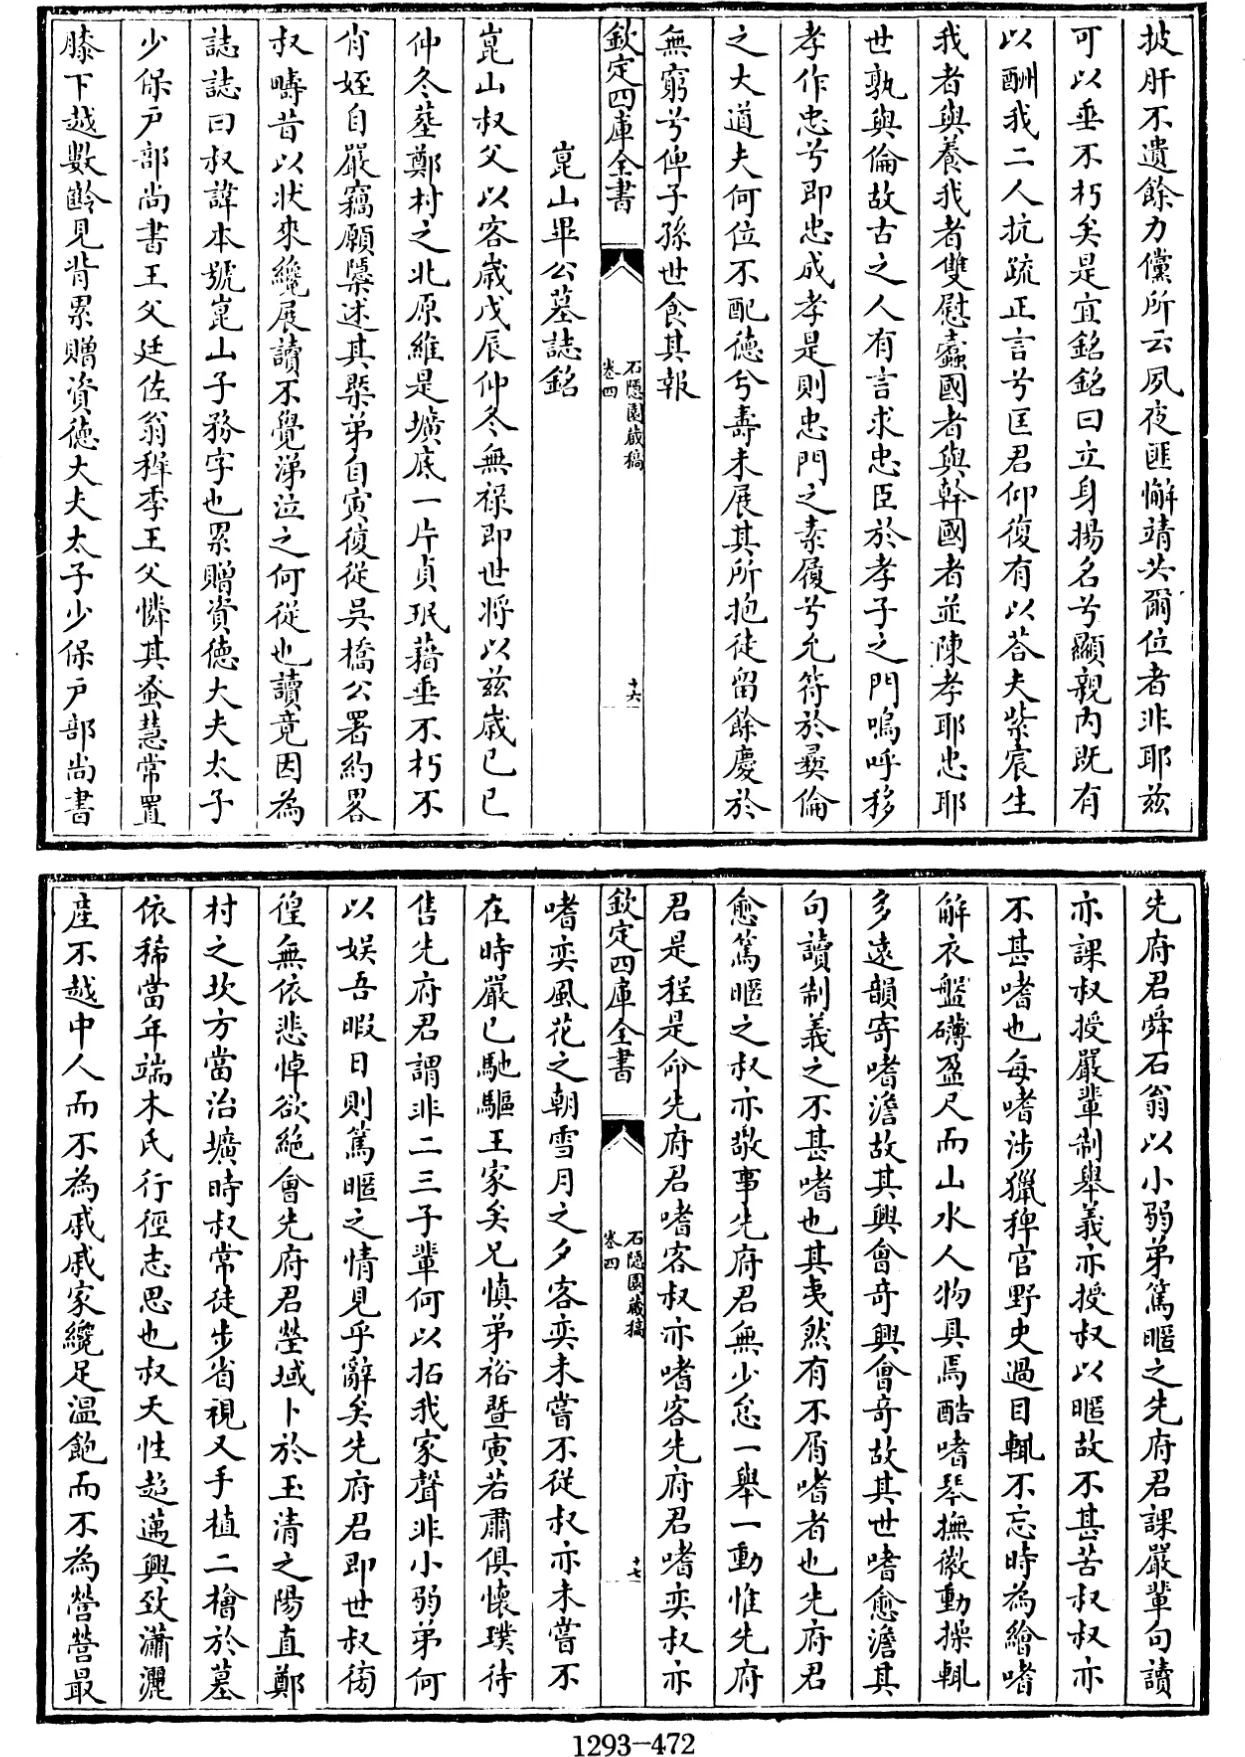 披肝不遺餘力儻所云夙夜匪懈靖共爾位者非耶兹
可以垂不朽矣是宜銘銘曰立身揚名兮顯親内既有
以酬我二人抗疏正言兮匡君仰復有以荅夫紫宸生
我者與養我者雙慰蠧國者與幹國者並陳孝耶忠耶
世孰與倫故古之人有言求忠臣於孝子之門嗚呼移
孝作忠兮即忠成孝是則忠門之素履兮允符於彛倫
之大道夫何位不配德兮壽未展其所抱徒留餘慶於
無窮兮俾子孫世食其報
欽定四庫全書
石隱園藏稿
卷四
十六
崑山畢公墓誌銘
崑山叔父以客歳戊辰仲冬無禄即世將以兹歳已巳
仲冬塟鄭村之北原維是壙底一片貞珉藉垂不朽不
肖姪自嚴竊願櫽述其槩弟自寅復從吳橋公署約畧
叔疇昔以狀來纔展讀不覺涕泣之何從也讀竟因為
誌誌曰叔諱本號崑山子務字也累贈資德大夫太子
少保戸部尚書王父廷佐翁穉季王父憐其蚤慧常置
膝下越數齡見背累贈資德大夫太子少保戸部尚書
先府君舜石翁以小弱弟篤暱之先府君課嚴輩句讀
亦課叔授嚴輩制舉義亦授叔以暱故不甚苦叔叔亦
不甚嗜也每嗜涉獵稗官野史過目輒不忘時為繪嗜
解衣盤礴盈尺而山水人物具焉酷嗜琴撫徽動操輒
多遠韻寄嗜澹故其興會竒興會竒故其世嗜愈澹其
句讀制義之不甚嗜也其夷然有不屑嗜者也先府君
愈篤暱之叔亦敬事先府君無少怠一舉一動惟先府
君是程是命先府君嗜客叔亦嗜客先府君嗜奕叔亦
欽定四庫全書
石隱園藏稿
卷四
十七
嗜奕風花之朝雪月之夕客奕未嘗不從叔亦未嘗不
在時嚴已馳驅王家矣兄慎弟裕暨寅若肅俱懷璞待
售先府君謂非二三子輩何以拓我家聲非小弱弟何
以娱吾暇日則篤暱之情見乎辭矣先府君即世叔徬
徨無依悲悼欲絶會先府君塋域卜於玉清之陽直鄭
村之坎方當治壙時叔常徒步省視又手植二檜於墓
依稀當年端木氏行徑志思也叔天性超邁興致瀟灑
産不越中人而不為戚戚家纔足温飽而不為營營最
1293-472